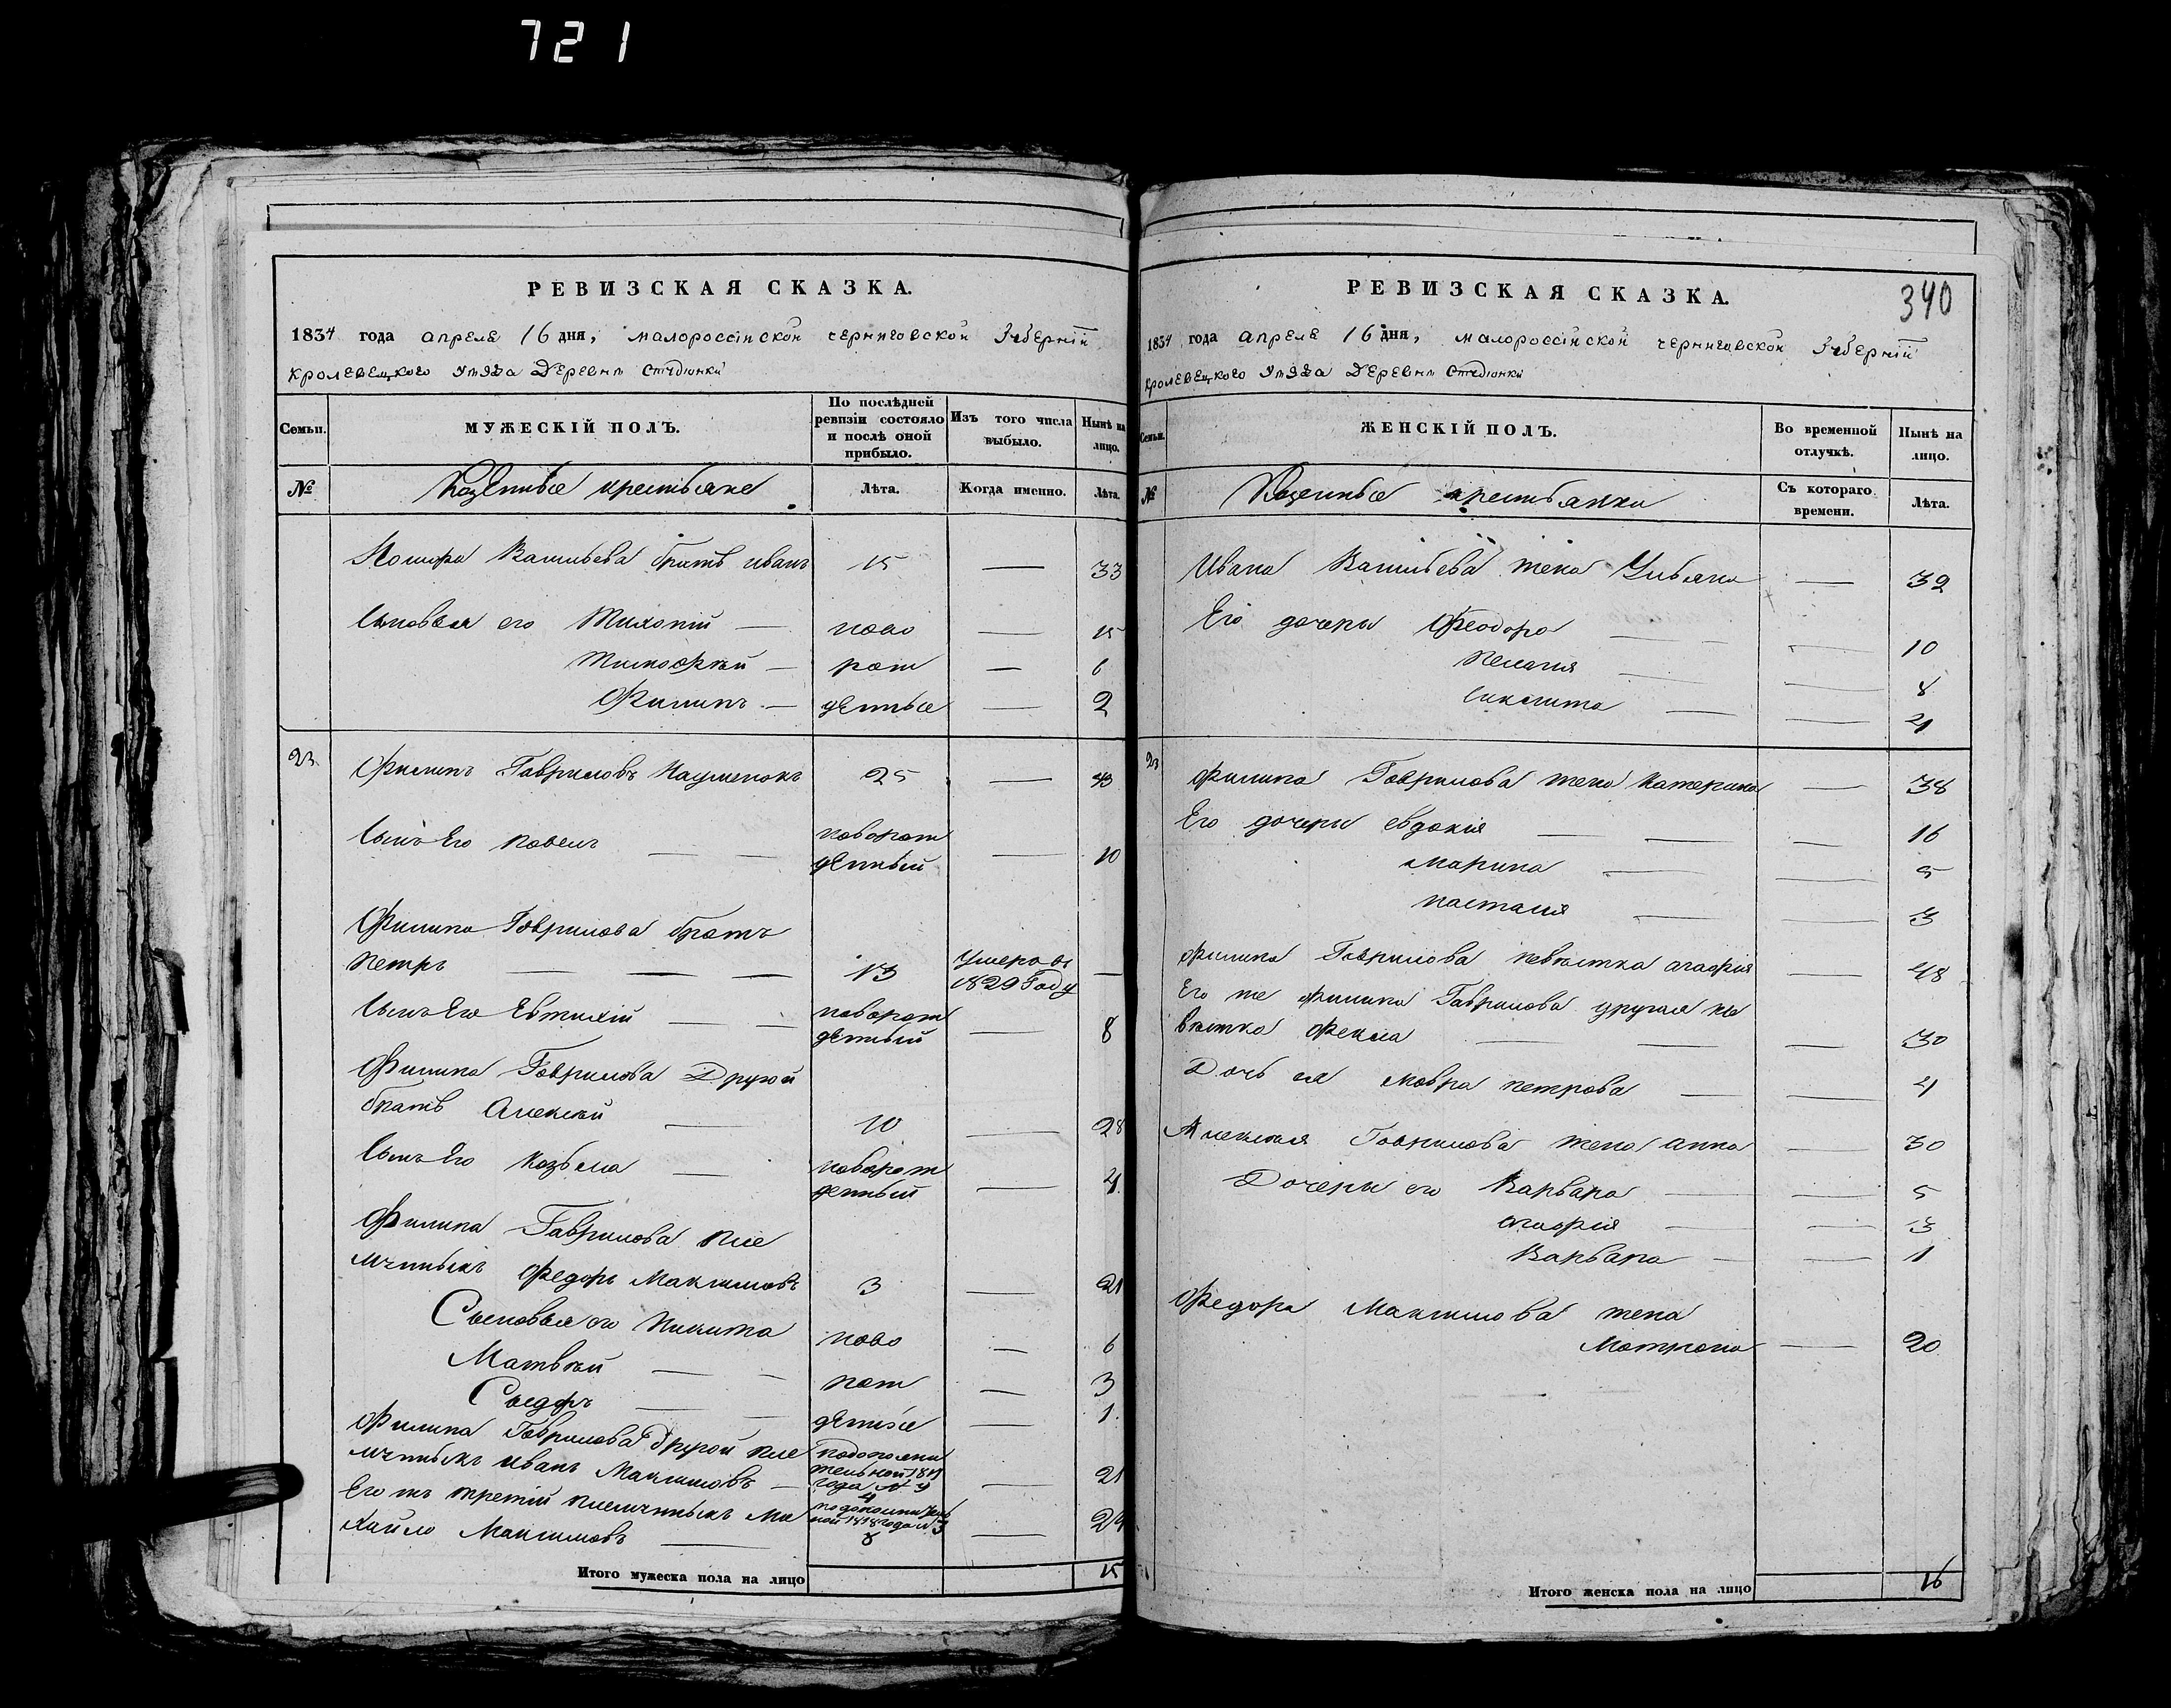 721
РЕВИЗСКАЯ СКАЗКА.
1834 года апреля 16 дня, малороссійской черниговской Губерніи
кролевецкого уѣзда Деревни Студіонки
Семьи.
МУЖЕСКІЙ ПОЛЪ.
По послѣдней ревизіи состояло и послѣ оной прибыло.
Изъ того числа выбыло.
Нынѣ на лицо.
№
Казенные крестьяне
Лѣта.
Когда именно.
Лѣта.
Васильева братъ иванъ 15 — 33
Сыновья его Тихонъ — ново — 15
Тимофѣй — рож — 6
Филипъ — денные — 2
23 Филипъ Гавриловъ Науменокъ 25 — 43
Сынъ Его павелъ — — новорож
денный — 10
Филипа Гаврилова братъ
петръ — — — 13 Умеръ въ 1829 Году —
Сынъ Его Евтихій — — новорож
денный — 8
Филипа Гаврилова Другой
братъ Алексѣй — 10 — 28
Сынъ Его Козьма — новорож
денный — 4
Филипа Гаврилова пле
мянныкъ Федоръ Максимовъ 3 — 21
Сыновья его Никита ново — 6
Матвѣй — — рож — 3
— — денные — 1
Филипа Гаврилова другой пле
мянныкъ иванъ Максимовъ —
года № 9
4 — 21
Его жъ третій племянныкъ Ми
хайло Максимовъ —
ной 1818 года № 3
8 — 24
Итого мужеска пола на лицо 15
РЕВИЗСКАЯ СКАЗКА.
340
1834 года апреля 16 дня, малороссійской черниговской Губерніи
кролевецкого уѣзда Деревни Студіонки
Семьи.
ЖЕНСКІЙ ПОЛЪ.
Во временной отлучкѣ.
Нынѣ на лицо.
№
Казенные крестьянки
Съ котораго времени.
Лѣта.
Ивана Васильева жена Ульяна — 39
Его дочери Феодора — — — 10
Пелагия — — 8
— —
23 Филипа Гаврилова жена Катерина — 38
Его дочери евдокія — — — 16
марина — — 5
настасия — — 3
Филипа Гаврилова невѣстка агафия — 48
Его же Филипа Гаврилова другая не
вѣстка Фекла — — — 30
Дочь ея мавра петрова — — 4
Алексѣя Гаврилова жена анна 30
Дочери его Варвара — — 5
агафия — — 3
Варвара — — 1
Федора Максимова жена
Матрона — 20
Итого женска пола на лицо 16